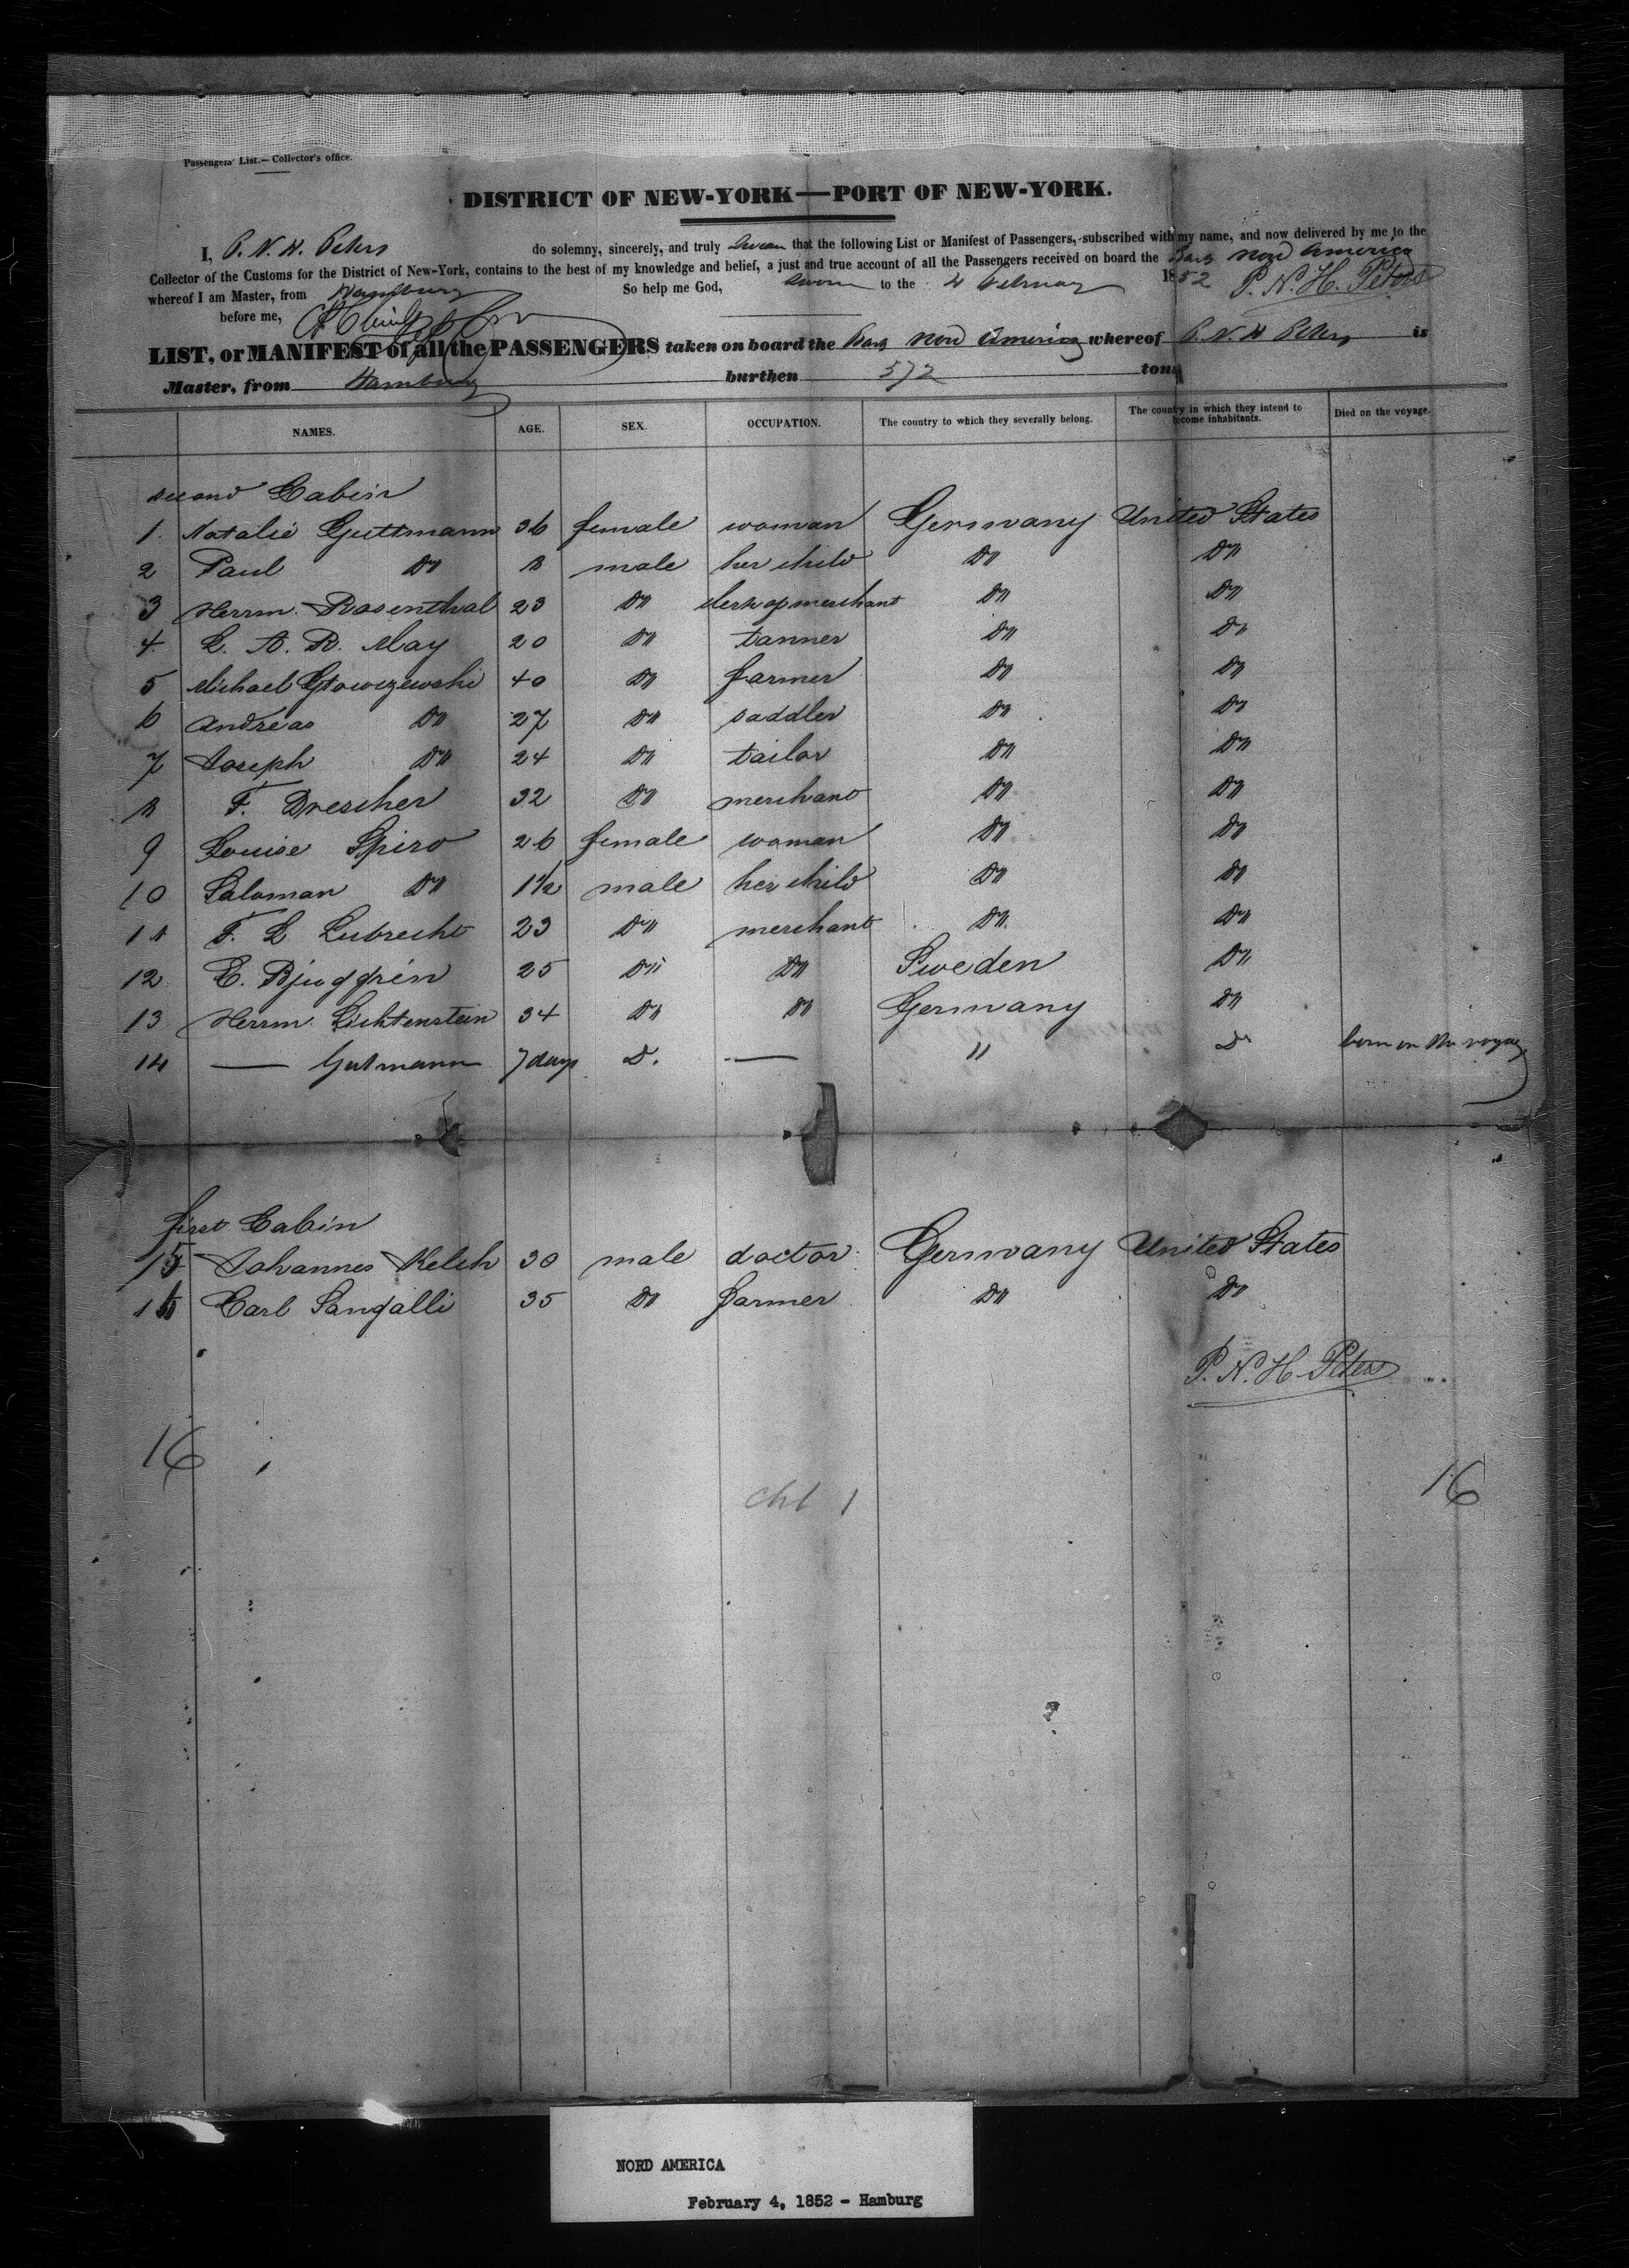 Passengers' List.—Collector's office.
DISTRICT OF NEW-YORK—PORT OF NEW-YORK.
I, P. N. H. Peters do solemny, sincerely, and truly swear that the following List or Manifest of Passengers, subscribed with my name, and now delivered by me to the
Collector of the Customs for the District of New-York, contains to the best of my knowledge and belief, a just and true account of all the Passengers received on board the Bark Nord America
whereof I am Master, from Hamburg So help me God, sworn to the 4 February 1852 P. N. H. Peters
before me,
LIST, or MANIFEST of all the PASSENGERS taken on board the Bark Nord America whereof P. N. H Peters is
Master, from Hamburg burthen 572 tons
NAMES. AGE. SEX. OCCUPATION. The country to which they severally belong. The country in which they intend to become inhabitants. Died on the voyage.
second Cabin
1. Natalie Guttmann 36 female woman Germany United States
2 Paul Do 8 male her child Do Do
3 Herrm. Rosenthal 23 Do clerk of merchant Do Do
4. L. A. R. May 20 Do tanner Do Do
5 Michael Glowczewski 40 Do farmer Do Do
6 Andreas Do 27 Do saddler Do Do
7 Joseph Do 24 Do tailor Do Do
8 F. Drescher 32 Do merchant Do Do
9 Louise Spiro 26 female woman Do Do
10 Saloman Do 1½ male her child Do Do
11 F. L Lubrecht 23 Do merchant Do. Do
12 E. Bjuggrén 25 Do Do Sweden Do
13 Herrm. Lichtenstein 34 Do Do Germany Do
14 — Gutmann 7 days D. — " Do born on the voyage
first Cabin
15 Johannes Kelch 30 male doctor Germany United States
16 Carl Sangalli 35 Do farmer Do Do
P. N. H. Peters
16
16
chl 1
NORD AMERICA
February 4, 1852 - Hamburg